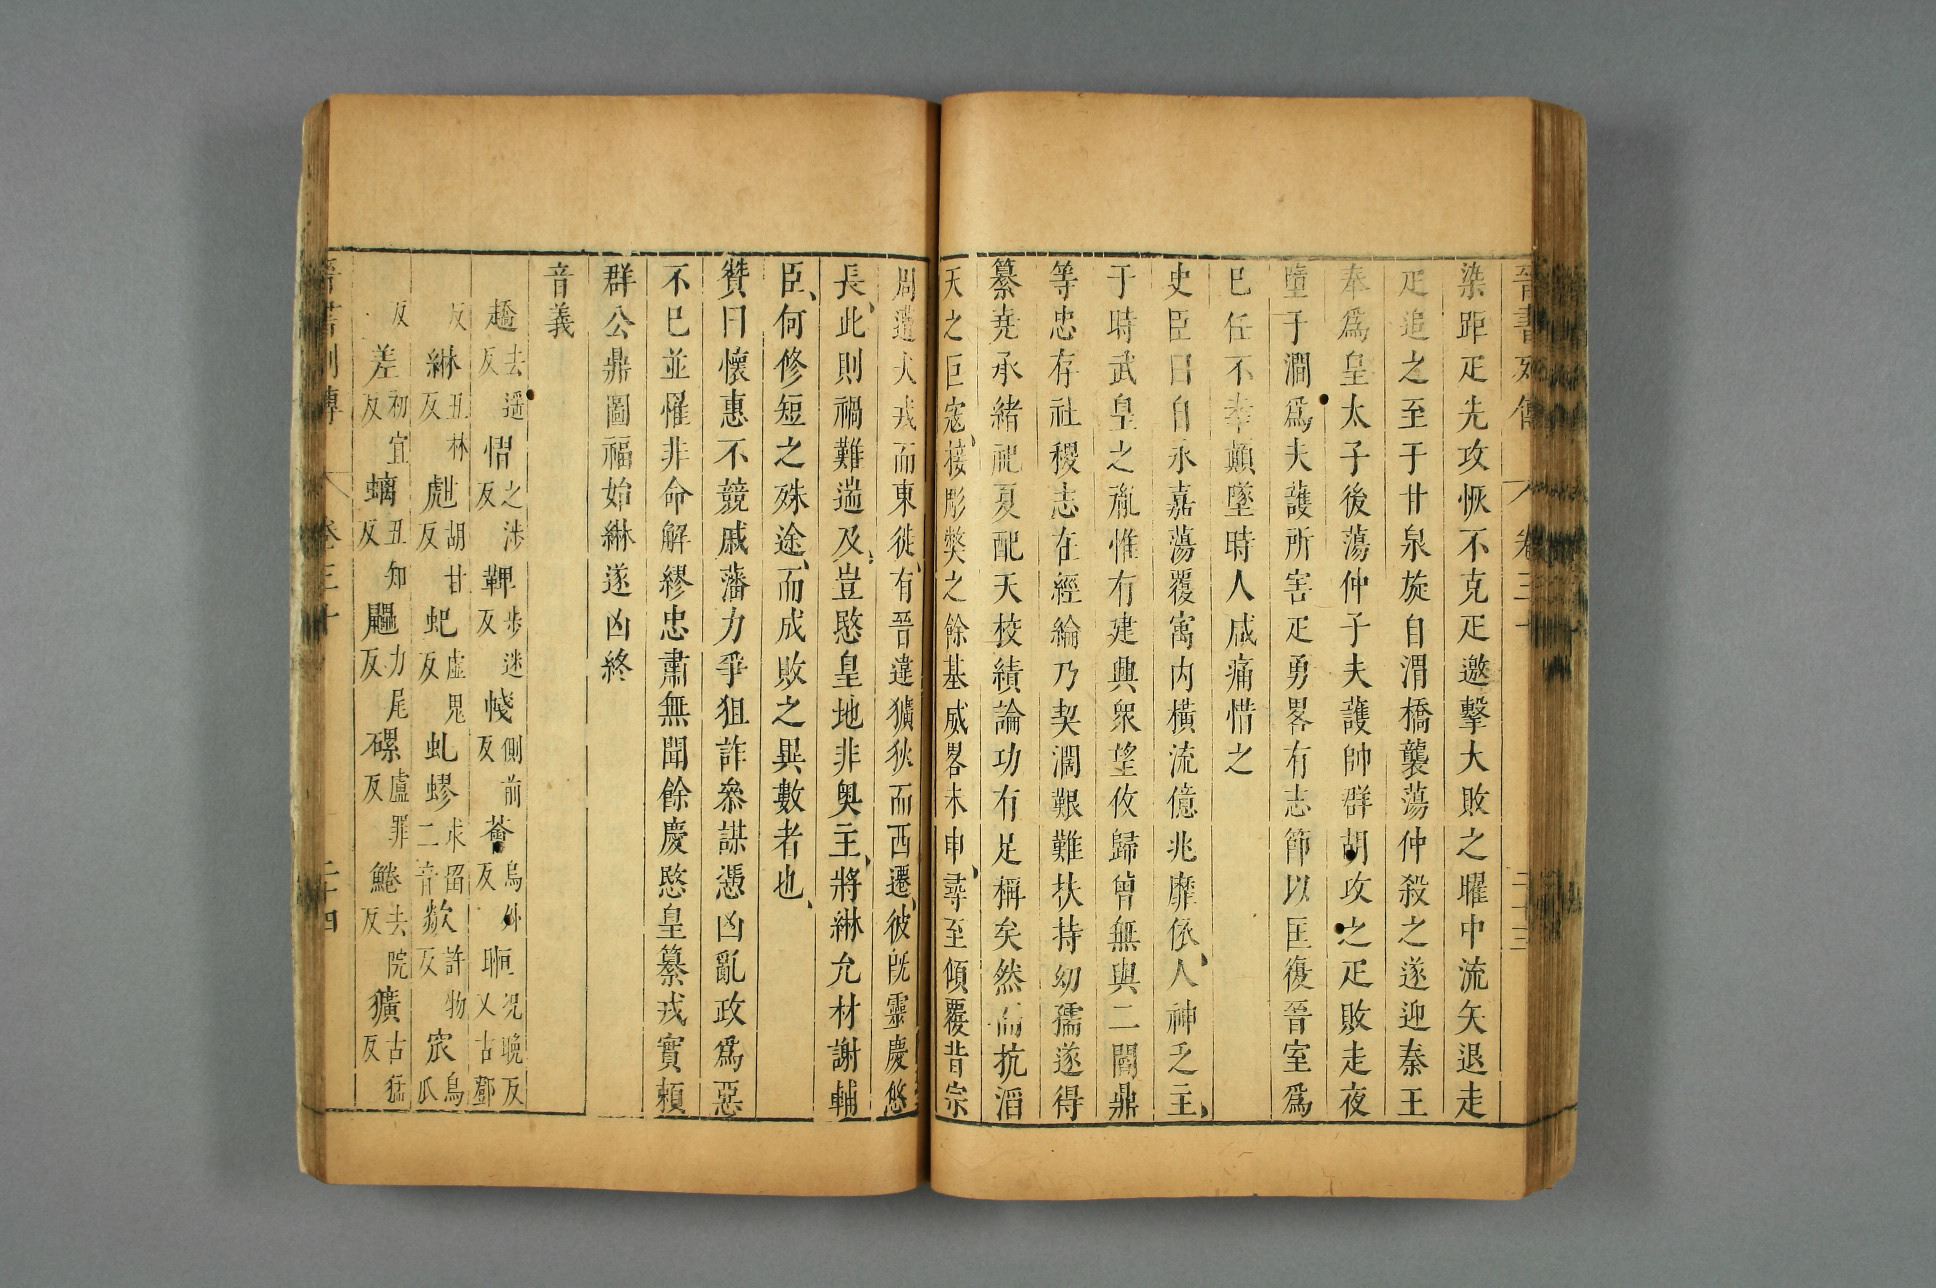 晉書列傳 卷三十 二十三
染距疋先攻恢不克疋邀擊大敗之曜中流矢退走
疋追之至于甘泉旋自渭橋襲蕩仲殺之遂迎秦王
奉爲皇太子後蕩仲子夫護帥群胡攻之疋敗走夜
墮于澗爲夫護所害疋勇畧有志節以匡復晉室爲
己任不幸顛墜時人咸痛惜之
史臣曰自永嘉蕩覆㝢内橫流億兆靡依人神乏主
于時武皇之胤惟有建興衆望攸歸曾無與二閻鼎
等忠存社稷志在經綸乃契濶艱難扶持幼孺遂得
纂堯承緒祀夏配天校績論功有足稱矣然而抗滔
天之巨寇接彫獘之餘基威畧未申尋至傾覆昔宗
周遭犬戎而東徙有晉違獷狄而西遷彼旣靈慶悠
長此則禍難遄及豈愍皇地非奥主將綝允材謝輔
臣何修短之殊途而成敗之異數者也
贊曰懷惠不競戚藩力爭狙詐叅謀憑凶亂政爲惡
不已並罹非命解繆忠肅無聞餘慶愍皇纂戎實頼
群公鼎圖福始綝遂凶終
音義
趫去遥反 慴之涉反 鞞步迷反 帴側前反 薈烏外反 晅况晚反又古鄧
反 綝丑林反 甝胡甘反 虵虛鬼反 虬蟉求留二音 欻許物反 窊烏瓜
反 差初宜反 螭丑知反 力尾反 磥盧罪反 鯗去院反 獷古猛反
晉書列傳 卷三十 二十四